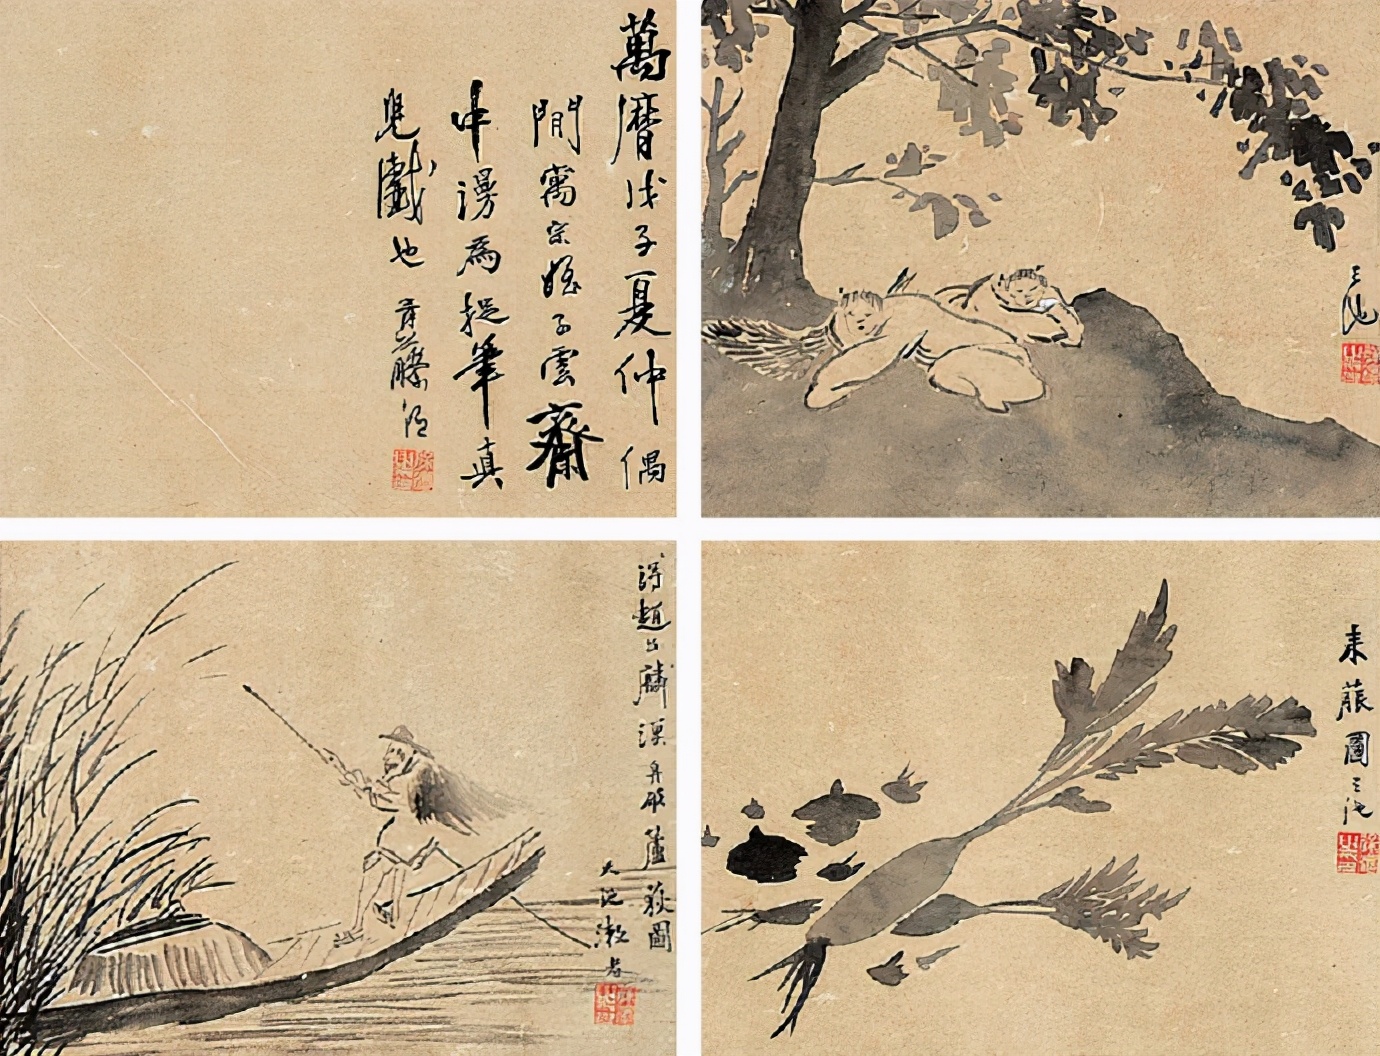 萬曆戊子夏仲偶
閒寓宗姪子雲齋
中漫為捉筆真
兒戲也
青藤
天池
得趙公麟漁舟破蘆荻圖
天池漱者
來菔圖 天池